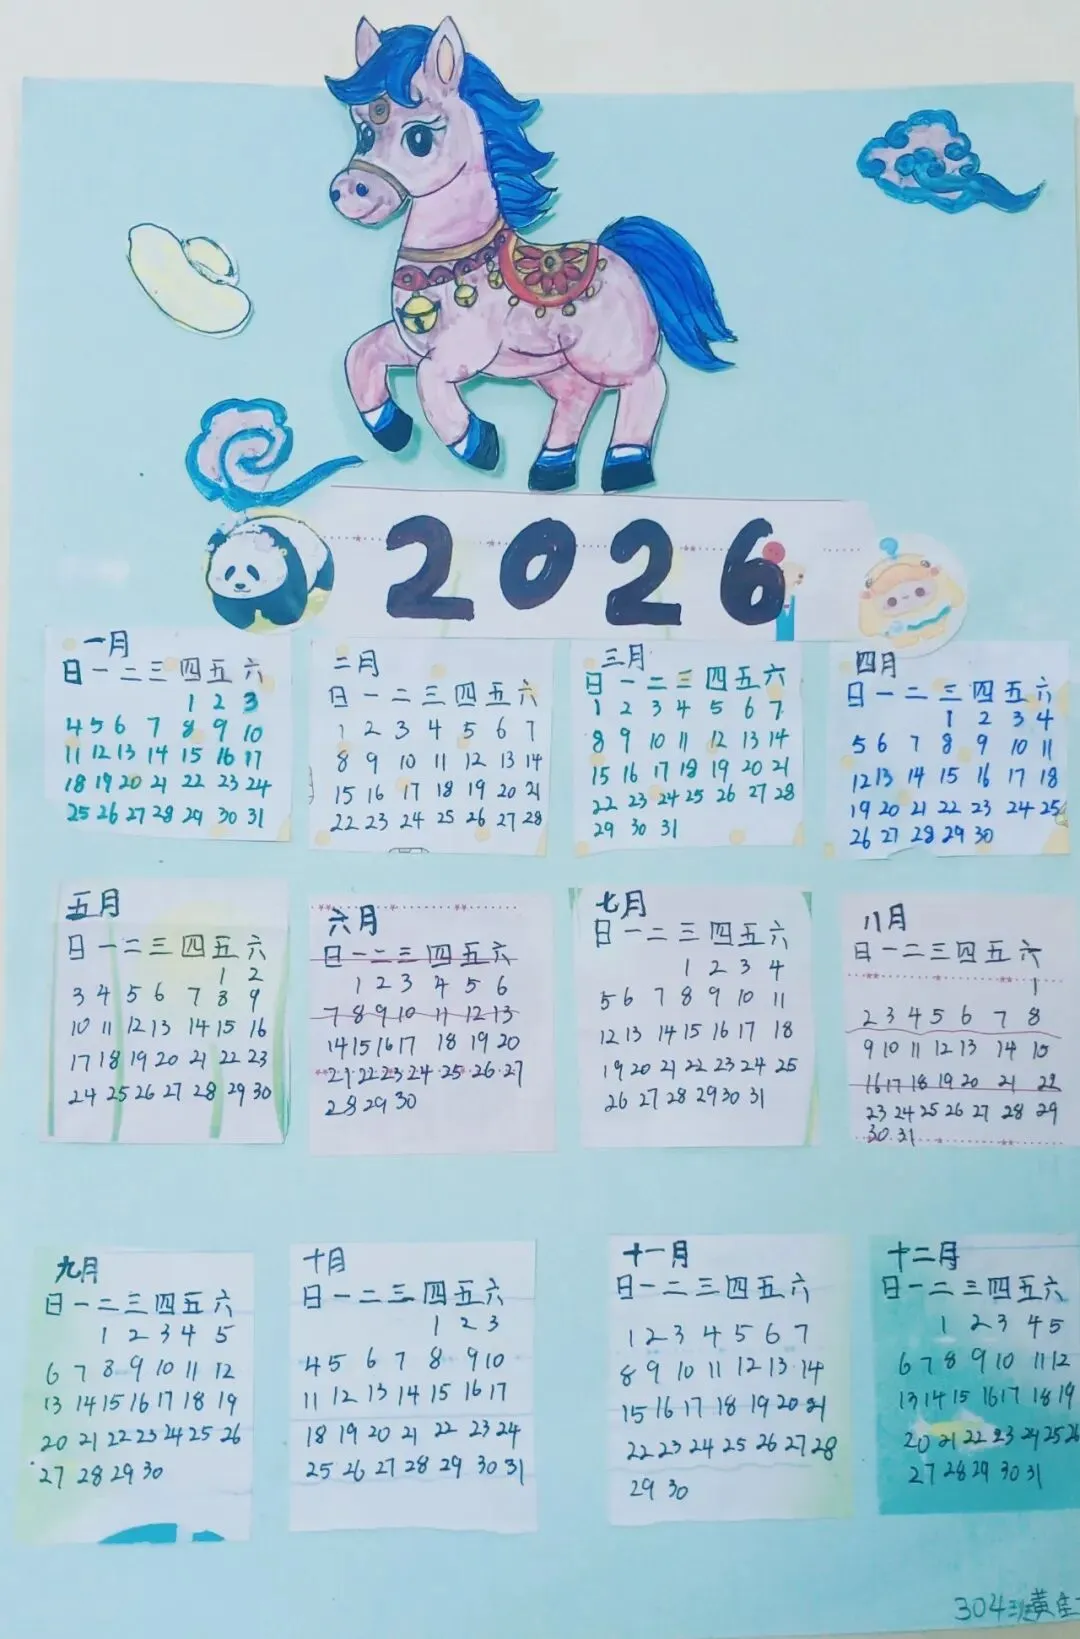 2026
一月
日 一 二 三 四 五 六
1 2 3
4 5 6 7 8 9 10
11 12 13 14 15 16 17
18 19 20 21 22 23 24
25 26 27 28 29 30 31
二月
日 一 二 三 四 五 六
1 2 3 4 5 6 7
8 9 10 11 12 13 14
15 16 17 18 19 20 21
22 23 24 25 26 27 28
三月
日 一 二 三 四 五 六
1 2 3 4 5 6 7
8 9 10 11 12 13 14
15 16 17 18 19 20 21
22 23 24 25 26 27 28
29 30 31
四月
日 一 二 三 四 五 六
1 2 3 4
5 6 7 8 9 10 11
12 13 14 15 16 17 18
19 20 21 22 23 24 25
26 27 28 29 30
五月
日 一 二 三 四 五 六
1 2
3 4 5 6 7 8 9
10 11 12 13 14 15 16
17 18 19 20 21 22 23
24 25 26 27 28 29 30
六月
日 一 二 三 四 五 六
1 2 3 4 5 6
7 8 9 10 11 12 13
14 15 16 17 18 19 20
21 22 23 24 25 26 27
28 29 30
七月
日 一 二 三 四 五 六
1 2 3 4
5 6 7 8 9 10 11
12 13 14 15 16 17 18
19 20 21 22 23 24 25
26 27 28 29 30 31
八月
日 一 二 三 四 五 六
1
2 3 4 5 6 7 8
9 10 11 12 13 14 15
16 17 18 19 20 21 22
23 24 25 26 27 28 29
30 31
九月
日 一 二 三 四 五 六
1 2 3 4 5
6 7 8 9 10 11 12
13 14 15 16 17 18 19
20 21 22 23 24 25 26
27 28 29 30
十月
日 一 二 三 四 五 六
1 2 3
4 5 6 7 8 9 10
11 12 13 14 15 16 17
18 19 20 21 22 23 24
25 26 27 28 29 30 31
十一月
日 一 二 三 四 五 六
1 2 3 4 5 6 7
8 9 10 11 12 13 14
15 16 17 18 19 20 21
22 23 24 25 26 27 28
29 30
十二月
日 一 二 三 四 五 六
1 2 3 4 5
6 7 8 9 10 11 12
13 14 15 16 17 18 19
20 21 22 23 24 25 26
27 28 29 30 31
304班黄佳